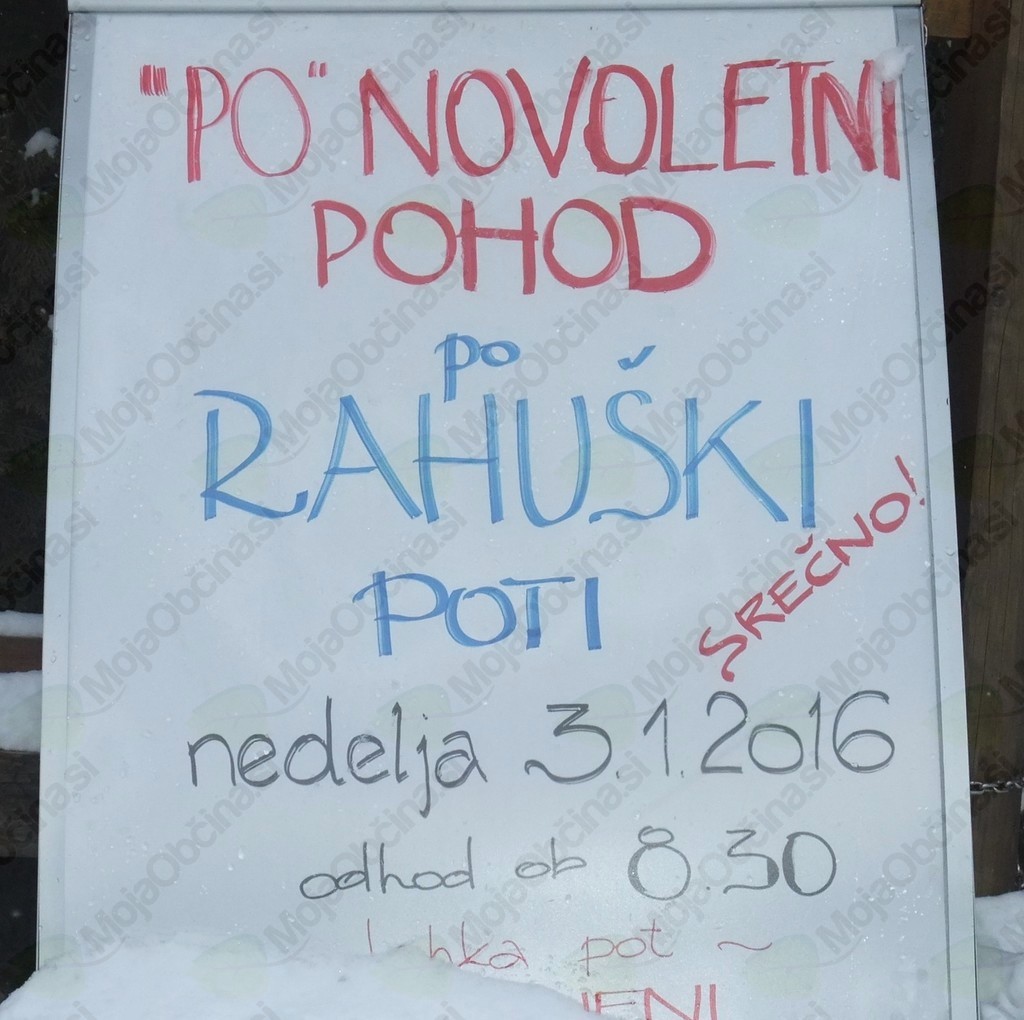 "PO" NOVOLETNI
POHOD
po
RAHUŠKI
POTI
SREČNO!
nedelja 3.1.2016
odhod ob 8.30
pot ~
MojaObčina.si